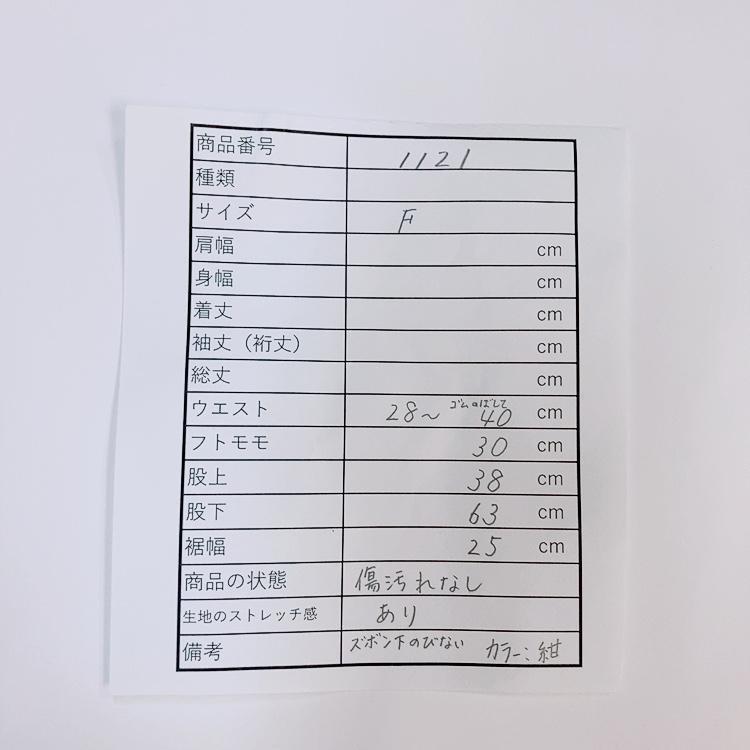 商品番号 1121
種類
サイズ F
肩幅 cm
身幅 cm
着丈 cm
袖丈（裄丈） cm
総丈 cm
ウエスト 28～ゴムのばして40 cm
フトモモ 30 cm
股上 38 cm
股下 63 cm
裾幅 25 cm
商品の状態 傷汚れなし
生地のストレッチ感 あり
備考 ズボン下のびない カラー：紺